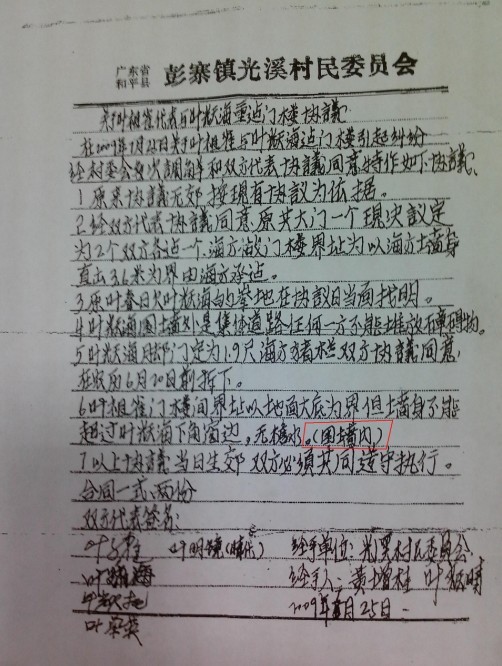 广东省
和平县 彭寨镇光溪村民委员会
关叶祖崔代表与叶献海重造门楼协议
在2009年1月22日关叶祖崔与叶献海造门楼引起纠纷
经村委会多次调解和双方代表协議同意特作如下协議、
1原来协議无效按现有协议为依据。
2.经双方代表协議同意原共大门一个现次議定
为2个双方各造一个、海方做门楼界址为以海方土墙身
直出3.6米为界由海方承造。
3.原叶春日欠叶献海的地在协议日当面找明。
4.叶献海围墙外是集体道路任何一方不能堆放
5叶献海门定为1.9尺海方双方协議同意,
在农历6月20日前拆下。
6.叶祖崔门楼间界址以地面大底为界但墙身不能
超过叶献海下角窗边,无檐水。(围墙内)
7.以上协議当日生效双方必须共同遵守执行。
合同一式、两份
双方代表签名:
叶明镜 经手单位: 村民委员会
经手人: 黄增柱
2009年 月25日